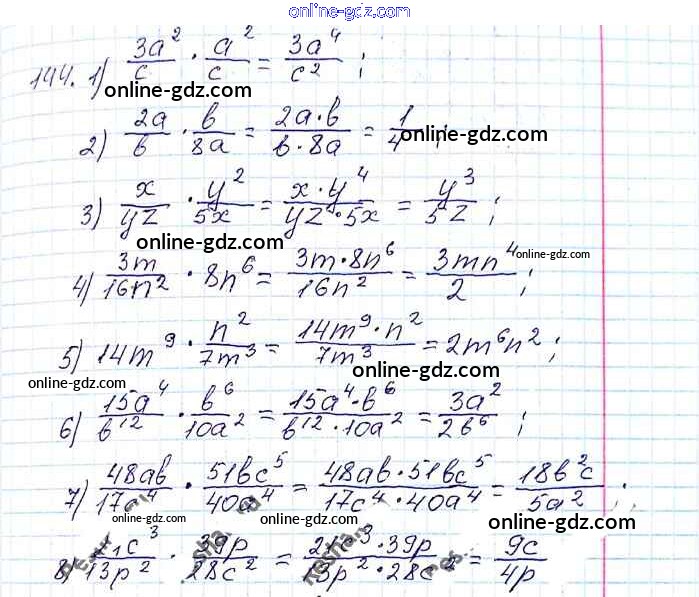 online-gdz.com
144. 1) 3a²/c · a²/c = 3a⁴/c² ;
online-gdz.com
2) 2a/b · b/8a = 2a·b/b·8a = 1/4 ;
online-gdz.com
3) x/yz · y²/5x = x·y⁴/yz·5x = y³/5z ;
online-gdz.com
online-gdz.com
4) 3m/16n² · 8n⁶ = 3m·8n⁶/16n² = 3mn⁴/2 ;
5) 14m⁹ · n²/7m³ = 14m⁹·n²/7m³ = 2m⁶n² ;
online-gdz.com online-gdz.com
6) 15a⁴/b¹² · b⁶/10a² = 15a⁴·b⁶/b¹²·10a² = 3a²/2b⁶ ;
online-gdz.com
7) 48ab/17c⁴ · 51bc⁵/40a⁴ = 48ab·51bc⁵/17c⁴·40a⁴ = 18b²c/5a² ;
online-gdz.com online-gdz.com online-gdz.com
8) c³/13p² · 39p/28c² = 39p/13p²·28c² = 9c/4p